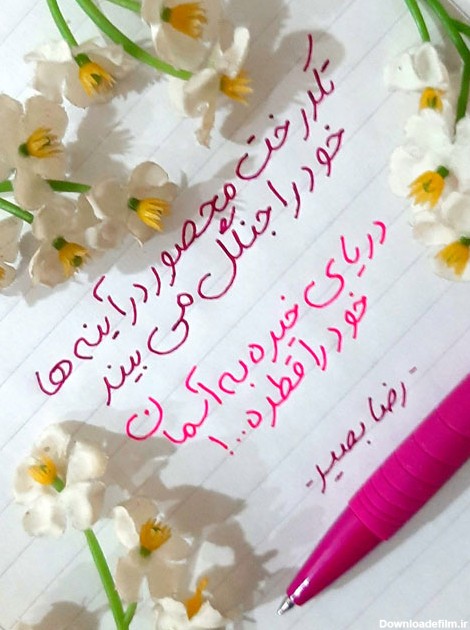 تکدرخت محصور در آینه ها
خود را جنگل می بیند
دریای خیره به آسمان
خود را قطره...!
- رضا بصیر -
Downloadefilm.ir